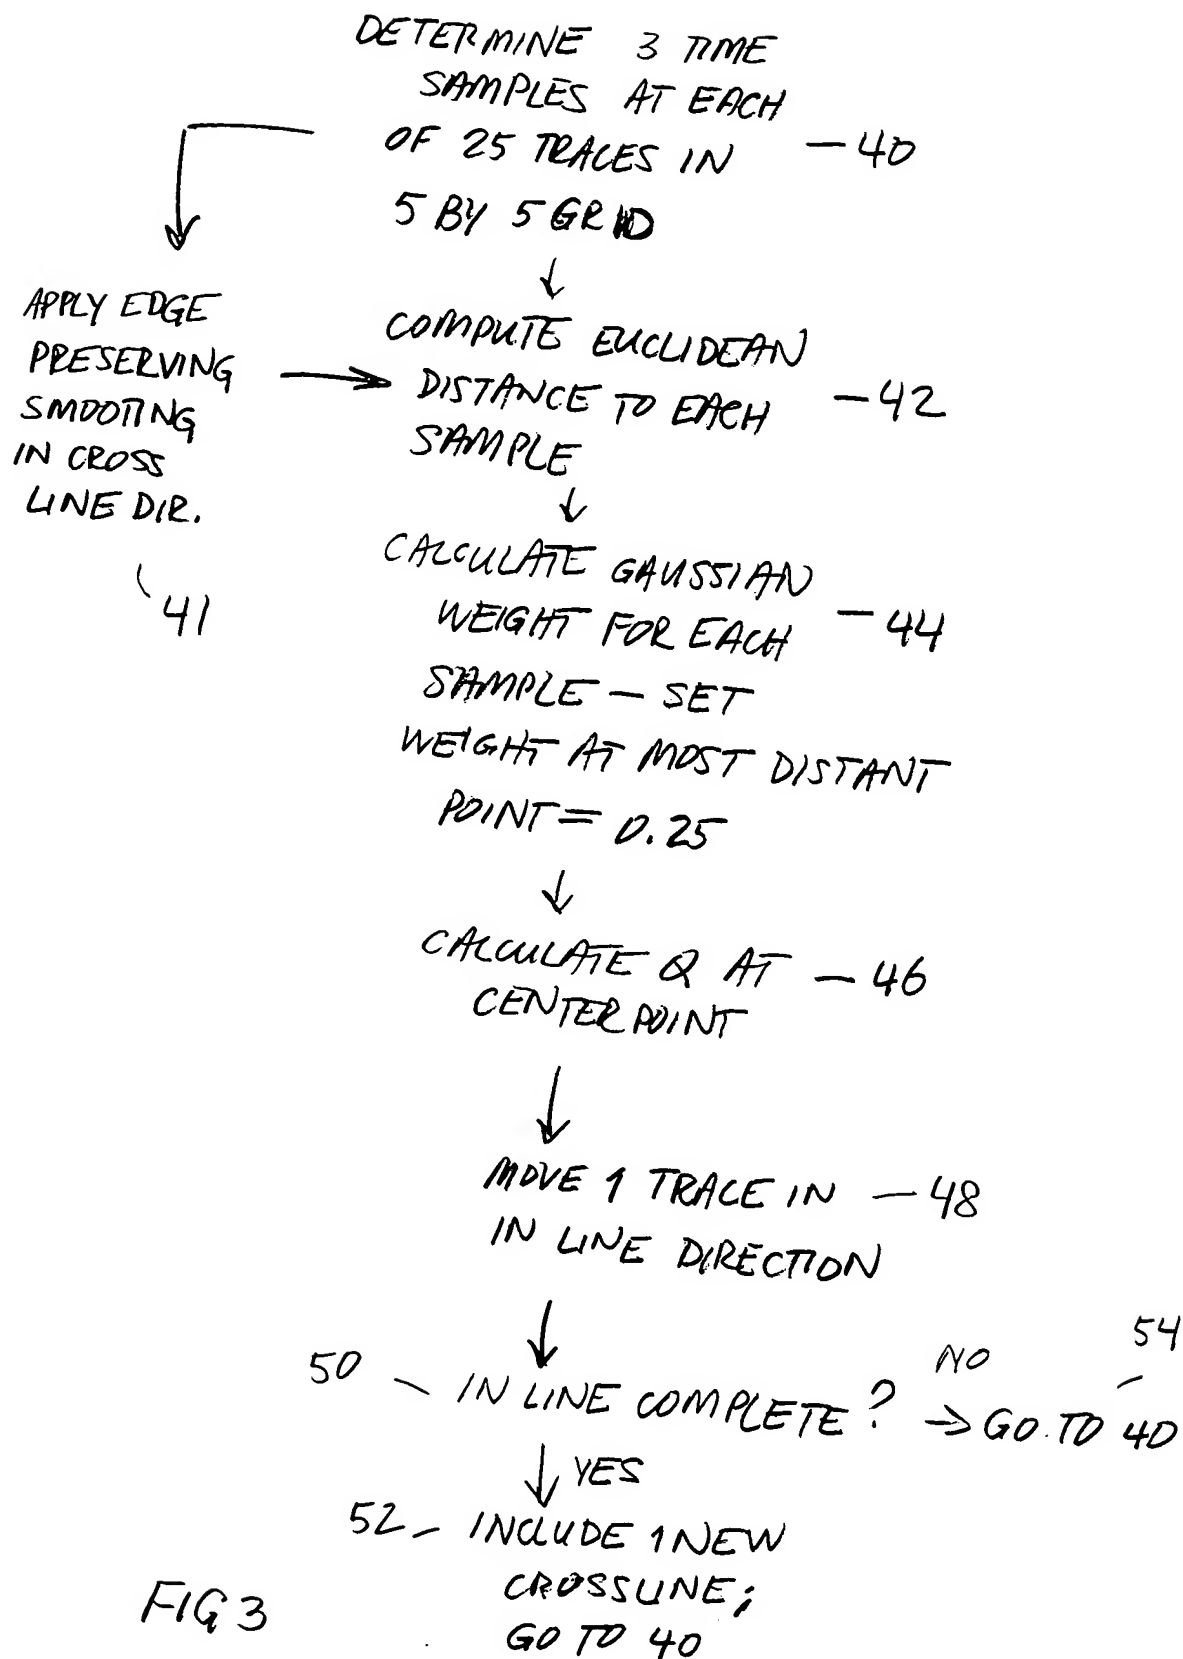 DETERMINE 3 TIME
SAMPLES AT EACH
OF 25 TRACES IN — 40
5 BY 5 GRID
APPLY EDGE
PRESERVING
SMOOTING
IN CROSS
LINE DIR.
41
COMPUTE EUCLIDEAN
DISTANCE TO EACH — 42
SAMPLE
CALCULATE GAUSSIAN
WEIGHT FOR EACH — 44
SAMPLE — SET
WEIGHT AT MOST DISTANT
POINT = 0.25
CALCULATE Q AT — 46
CENTERPOINT
MOVE 1 TRACE IN — 48
IN LINE DIRECTION
50 — IN LINE COMPLETE?
NO
54
GO TO 40
YES
52 — INCLUDE 1 NEW
CROSSLINE;
GO TO 40
FIG 3